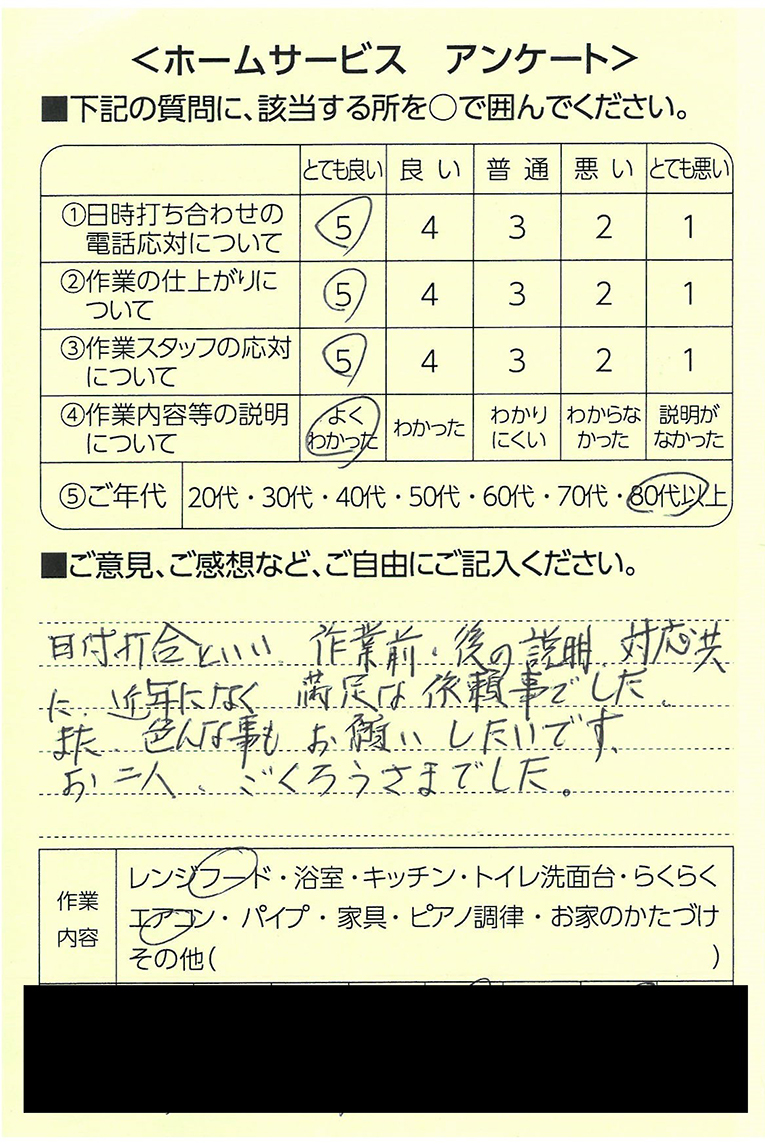 <ホームサービス アンケート>
■下記の質問に、該当する所を○で囲んでください。
とても良い 良い 普通 悪い とても悪い
①日時打ち合わせの
電話応対について 5 4 3 2 1
②作業の仕上がりに
ついて 5 4 3 2 1
③作業スタッフの応対
について 5 4 3 2 1
④作業内容等の説明
について よく
わかった わかった わかり
にくい わからな
かった 説明が
なかった
⑤ご年代 20代・30代・40代・50代・60代・70代・80代以上
■ご意見、ご感想など、ご自由にご記入ください。
日付打合といい、作業前・後の説明、対応共
に、近年になく 満足な依頼事でした。
また、色んな事も お願いしたいです、
お二人、ごくろうさまでした。
作業
内容
レンジフード・浴室・キッチン・トイレ洗面台・らくらく
エアコン・パイプ・家具・ピアノ調律・お家のかたづけ
その他( )